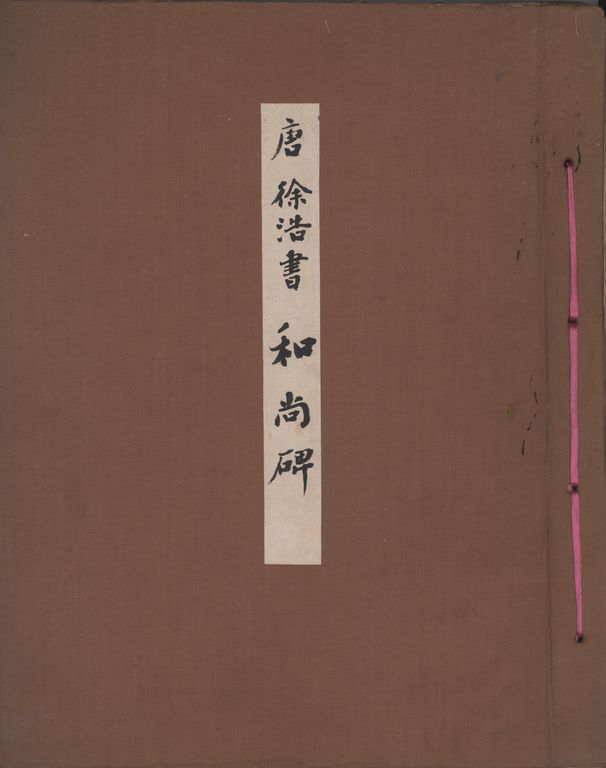 唐 徐浩書 和尚碑